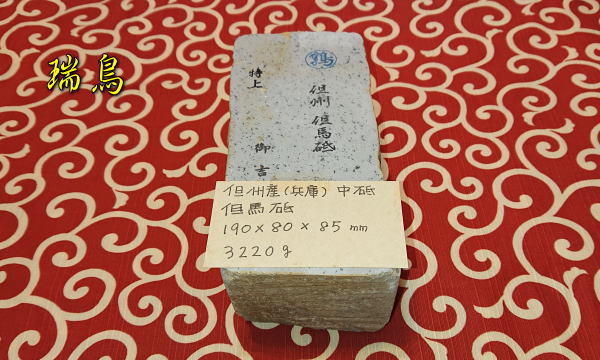 瑞鳥
特上
但州 但馬砥
御吉
但州産(兵庫) 中砥
但馬砥
190×80×85mm
3220g